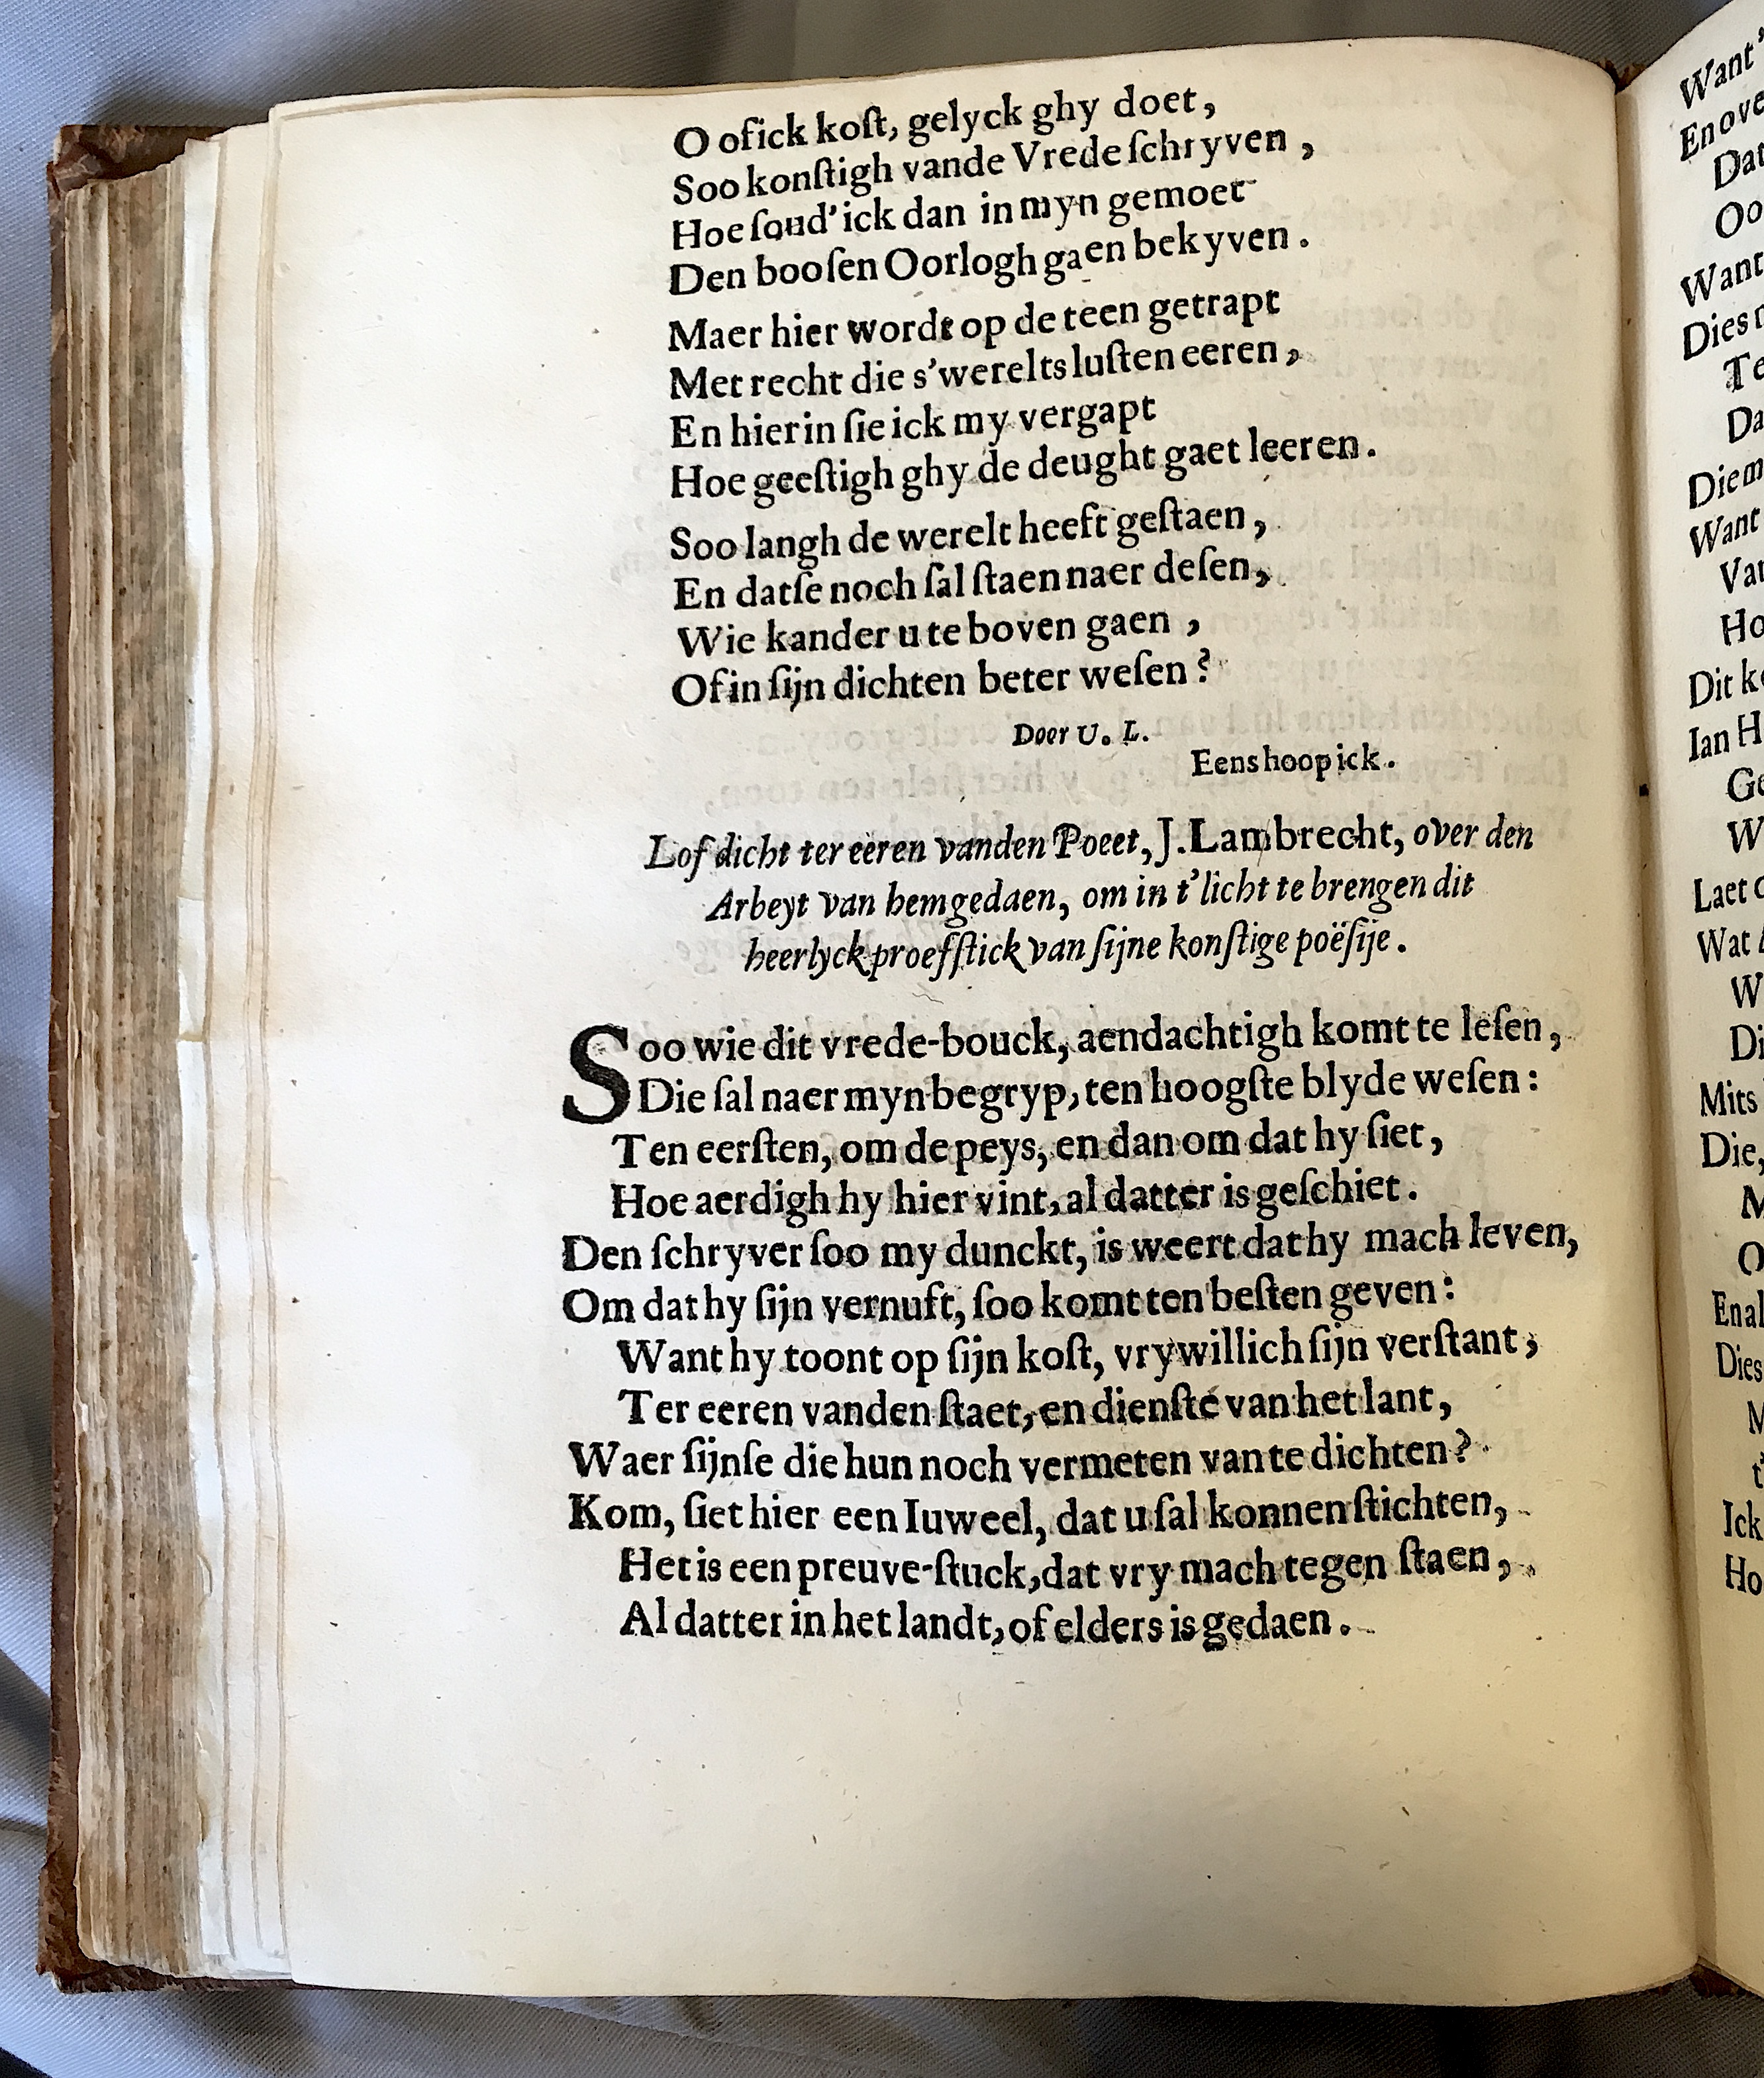 O of ick koſt, gelyck ghy doet,
Soo konſtigh vande Vrede ſchryven,
Hoe ſoud' ick dan in myn gemoet
Den booſen Oorlogh gaen bekyven.
Maer hier wordt op de teen getrapt
Met recht die s'werelts luſten eeren,
En hierin ſie ick my vergapt
Hoe geeſtigh ghy de deught gaet leeren.
Soo langh de werelt heeft geſtaen,
En datſe noch ſal ſtaen naer deſen,
Wie kander u te boven gaen,
Of in ſijn dichten beter weſen?
Door U. L.
Eens hoop ick.
Lof dicht ter eeren vanden Poeet, J. Lambrecht, over den
Arbeyt van hem gedaen, om in t'licht te brengen dit
heerlyck proefſtick van ſijne konſtige poëſije.
Soo wie dit vrede-bouck, aendachtigh komt te leſen,
Die ſal naer myn begryp, ten hoogſte blyde weſen:
Ten eerſten, om de peys, en dan om dat hy ſiet,
Hoe aerdigh hy hier vint, al datter is geſchiet.
Den ſchryver ſoo my dunckt, is weert dat hy mach leven,
Om dat hy ſijn vernuft, ſoo komt ten beſten geven:
Want hy toont op ſijn koſt, vrywillich ſijn verſtant,
Ter eeren vanden ſtaet, en dienſte van het lant,
Waer ſijnſe die hun noch vermeten van te dichten?
Kom, ſiet hier een Iuweel, dat u ſal konnen ſtichten,
Het is een preuve-ſtuck, dat vry mach tegen ſtaen,
Al datter in het landt, of elders is gedaen.
Want
Dat
Want
Want
Dit
Ian H
Laet
Wat
Mits
Die,
Dies
Ick